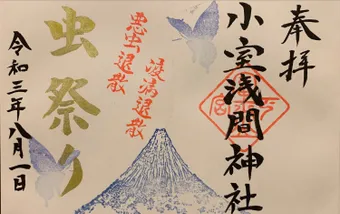 奉拝
小室浅間神社
疫病退散
悪虫退散
虫祭り
令和三年八月一日